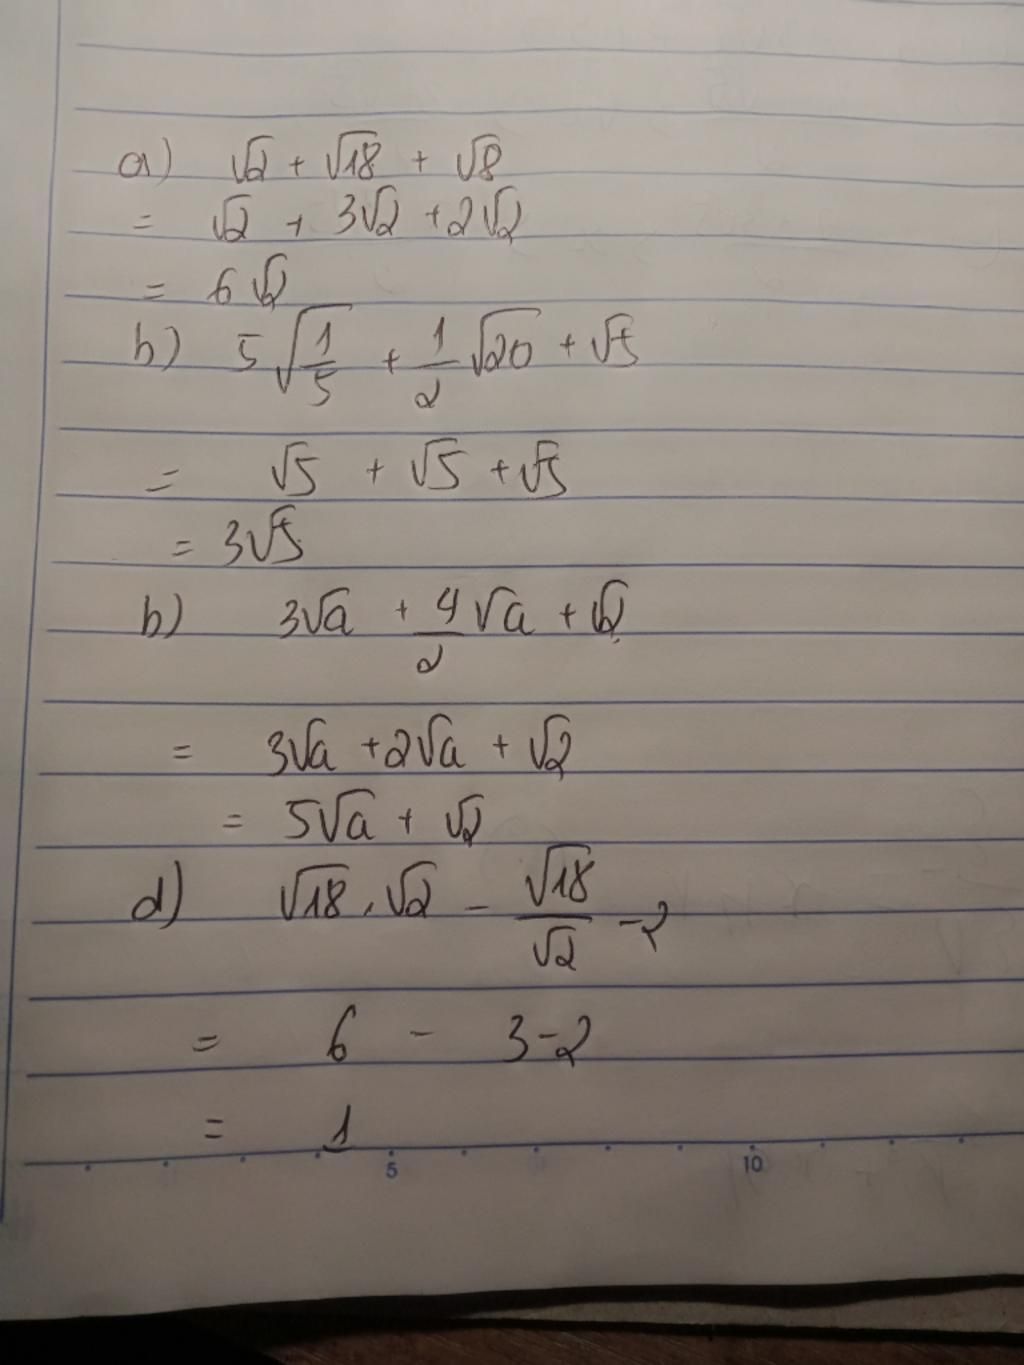 a) √2 + √18 + √8
= √2 + 3√2 + 2√2
= 6√2
b) 5√(1/5) + 1/2 √20 + √5
= √5 + √5 + √5
= 3√5
b) 3√a + 4/2 √a + √2
= 3√a + 2√a + √2
= 5√a + √2
d) √18 . √2 - √18/√2 - 2
= 6 - 3 - 2
= 1
5 10